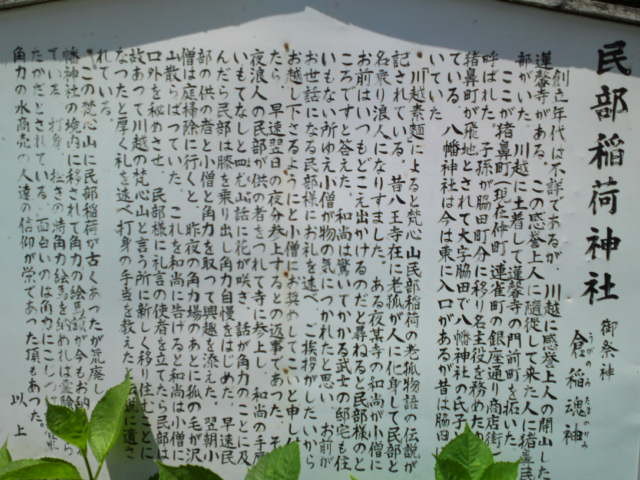 民部稲荷神社
御祭神
倉稲魂神
うがのみたまのかみ
創立年代は不詳であるが、川越に感誉上人の開山した
蓮馨寺がある。この感誉上人に随従して来た人に猪鼻民
部がいた。川越に土着して蓮馨寺の門前町を拓いた。
ここが猪鼻町(現在仲町、連雀町の銀座通り商店街)と
呼ばれた。子孫が脇田町分に移り名主役を務めたゆ
猪鼻町が飛地とされて大字脇田で八幡神社の氏子
ている。八幡神社は今は東に入口があるが昔は脇田
いていた
川越素麺によると梵心山民部稲荷の老狐物語の伝説が
記されている。昔八王子在に老狐が人に化身して民部と
名乗り浪人になりすました。ある夜某寺の和尚が小僧に
お前はいつもどこえ出かけるのだと尋ねると民部様のと
ころですと答えた。和尚は驚いてかかる武士の邸宅も住
いもない所ゆえ小僧が物の気につかれたと思い、お前が
お世話になる民部様にお礼を述べ、ご挨拶がしたいから
お越し下さるようにと小僧にお奨めしてこいと申し付
たら、早速翌日の夜分参上するとの返事であった。そ
夜浪人の民部が供の者をつれて寺に参上し、和尚の手厚
いもてなしと四方山話に花が咲き、話が角力のことに及
んだら民部は膝を乗り出し角力自慢をはじめた。早速民
部の供の者と小僧と角力を取って興趣を添えた。翌朝小
僧は庭掃除に行くと、昨夜の角力場のあとに狐の毛が沢
山散らばっていた。これを和尚に告げると和尚は小僧に
口外を秘めさせ、民部様に礼言の使者を立てたら民部は
故あって川越の梵心山と言う所に新しく移り住むことに
なったと厚く礼を述べ打身の手当を教えた
れている。
この梵心山に民部稲荷が古くあったが荒廃し
幡神社の境内に移されて角力の絵馬額が今もお納
ている。打身、挫きの時角力絵馬を納めれば霊験
たかだとされている。面白いのは角力にこしつ
角力の水商売の人達の信仰が栄であった頃もあった。
以上